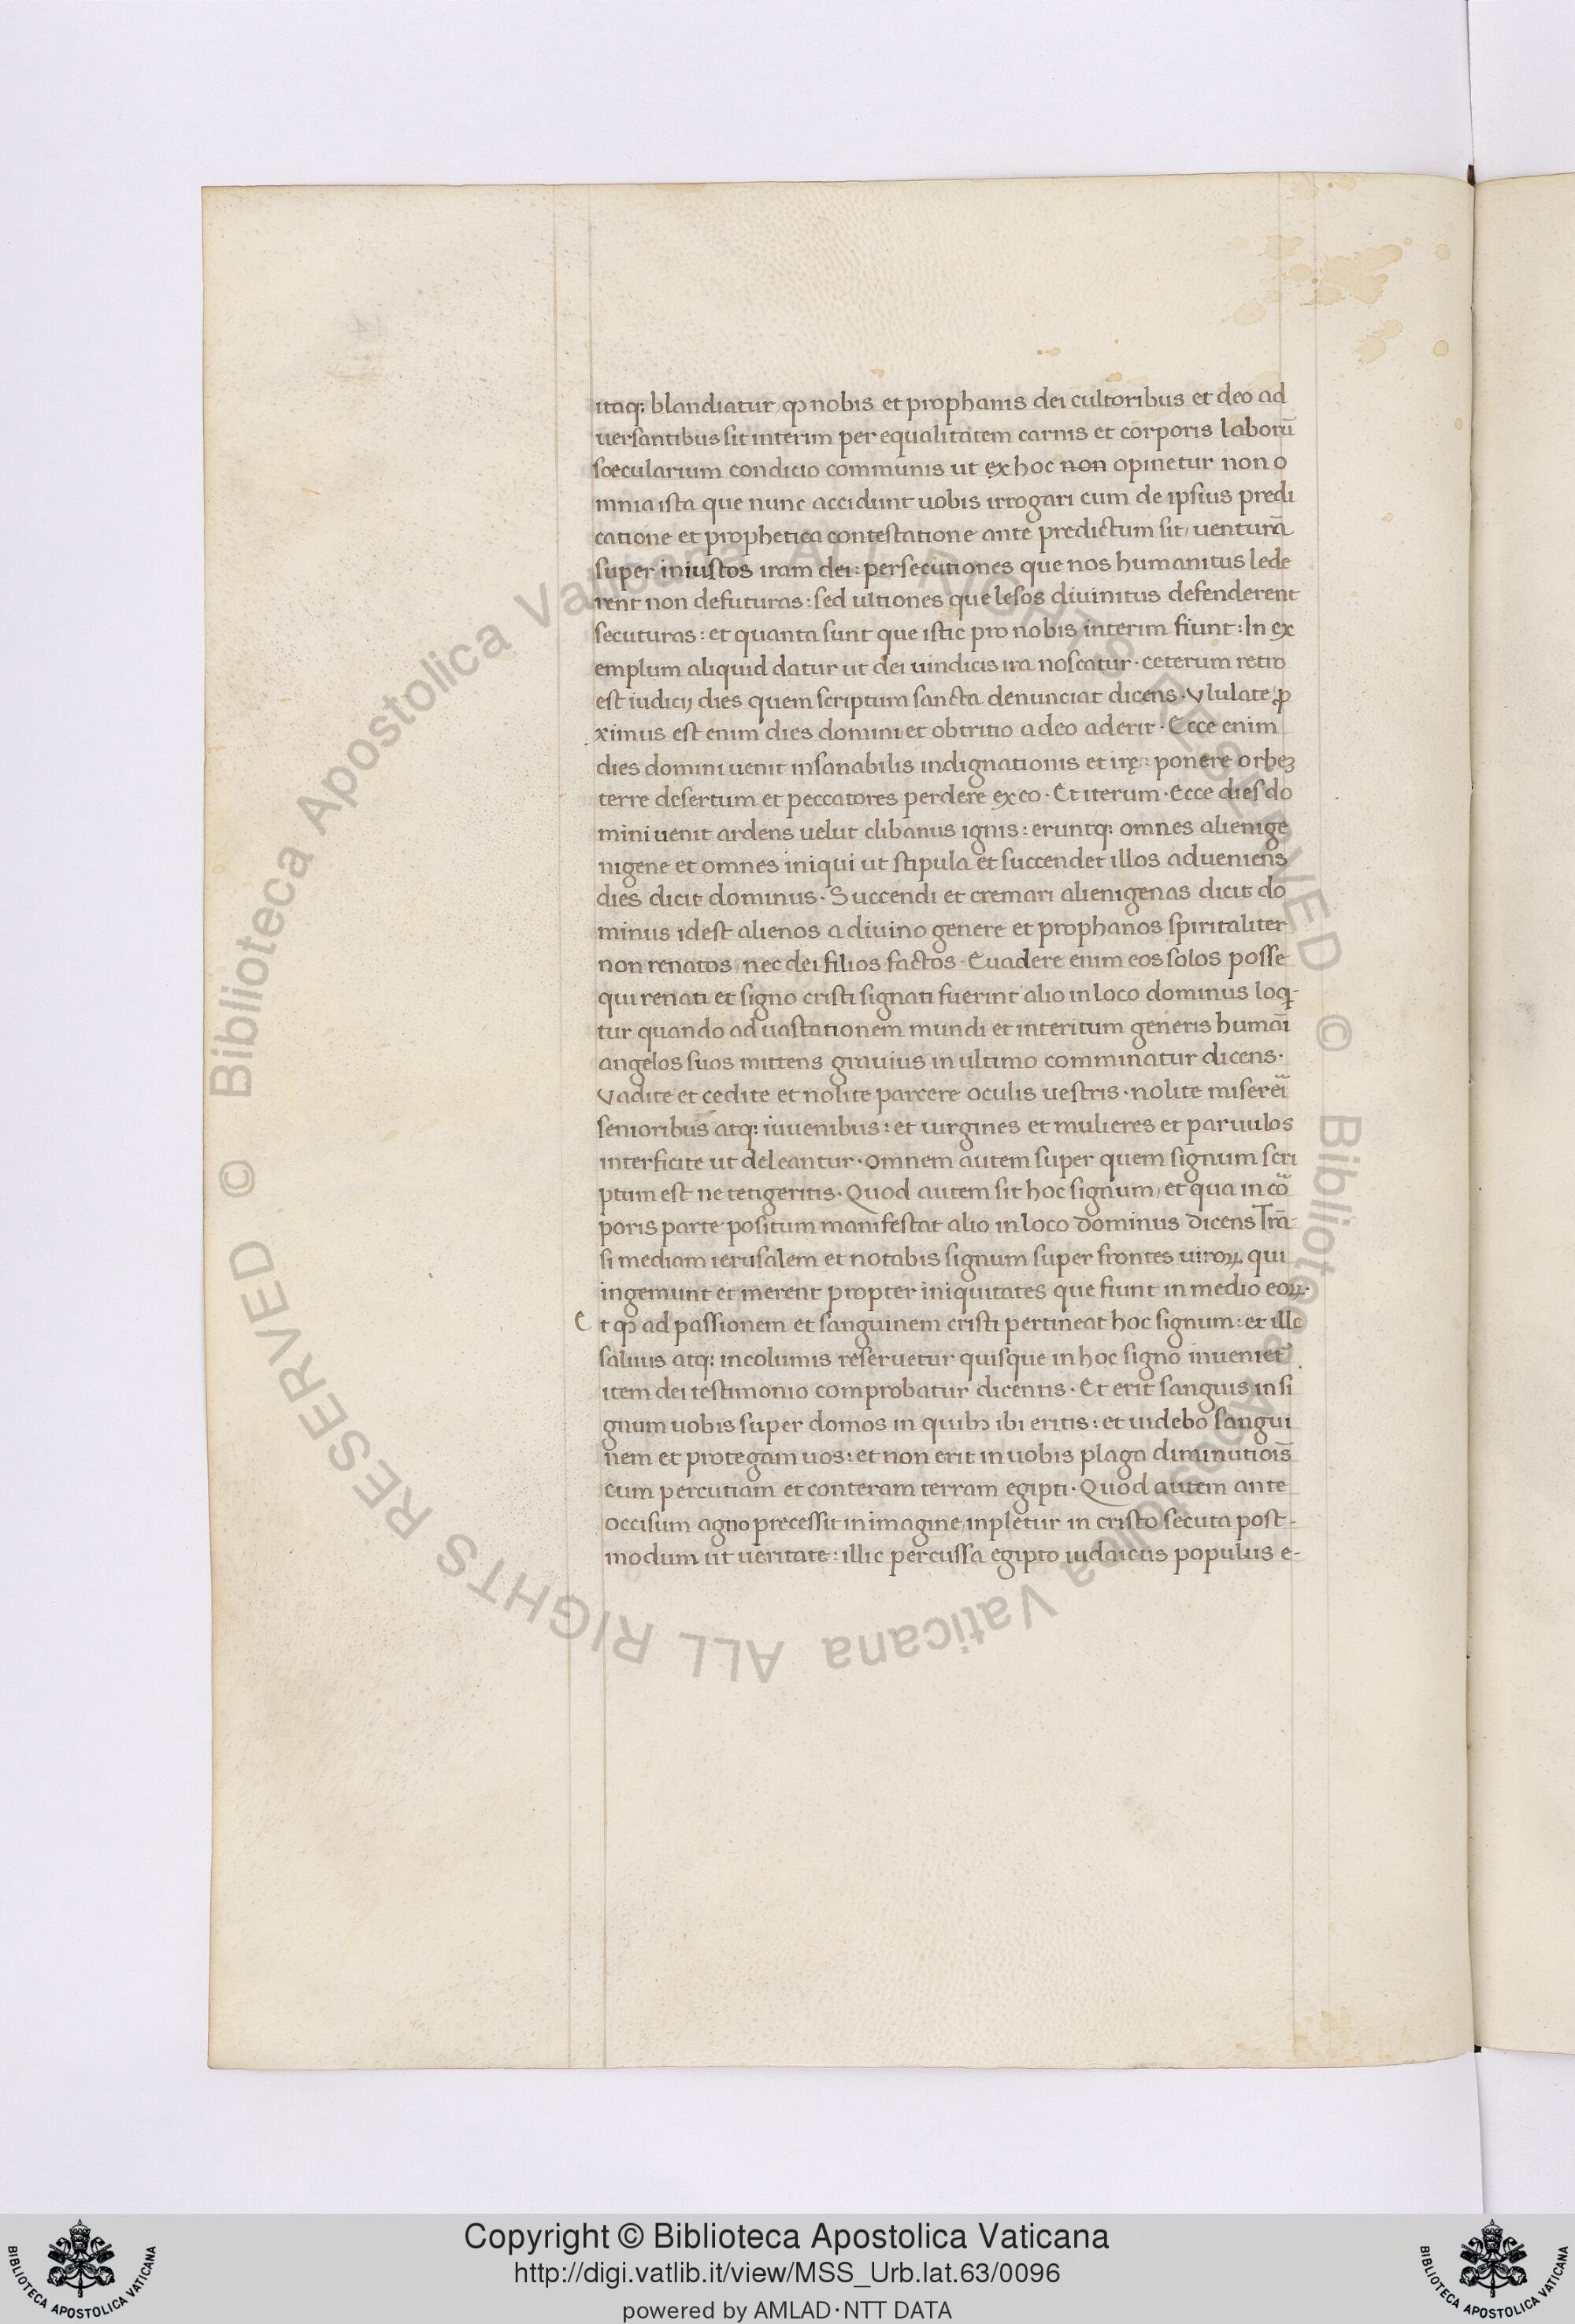 itaq; blandiatur, ꝙ nobis et prophanis dei cultoribus et deo ad
uersantibus sit interim per equalitatem carnis et corporis laborū
sęcularium condicio communis ut ex hoc non opinetur non o
mnia ista que nunc accidunt uobis irrogari cum de ipsius predi
catione et prophetica contestatione ante predictum sit, venturā
super iniustos iram dei: persecutiones que nos humanitus lede
rent non defuturas: sed ultiones que lesos diuinitus defenderent
secuturas: et quanta sunt que istic pro nobis interim fiunt: In ex
emplum aliquid datur ut dei uindicis ira noscatur· ceterum retro
est iudicij dies quem scriptura sancta denunciat dicens· Vlulate ꝓ
ximus est enim dies domini et obtritio a deo aderit· Ecce enim
dies domini uenit insanabilis indignationis et irę: ponere orbeꝫ
terre desertum et peccatores perdere ex eo· Et iterum· Ecce dies do
mini uenit ardens uelut clibanus ignis: eruntq; omnes alienige
nigene et omnes iniqui ut stipula et succendet illos adueniens
dies dicit dominus· Succendi et cremari alienigenas dicit do
minus idest alienos a diuino genere et prophanos spiritaliter
non renatos, nec dei filios factos· Euadere enim eos solos posse
qui renati et signo cristi signati fuerint alio in loco dominus loq-
tur quando ad uastationem mundi et interitum generis humāi
angelos suos mittens grauius in ultimo comminatur dicens·
Vadite et cedite et nolite parcere oculis uestris· nolite misereī
senioribus atq; iuuenibus: et uirgines et mulieres et paruulos
interficite ut deleantur· omnem autem super quem signum scri
ptum est ne tetigeritis· Quod autem sit hoc signum, et qua in co᷑
poris parte positum manifestat alio in loco dominus dicens Trā
si mediam ierusalem et notabis signum super frontes uiroꝝ qui
ingemunt et merent propter iniquitates que fiunt in medio eoꝝ·
Et ꝙ ad passionem et sanguinem cristi pertineat hoc signum: et ille
saluus atq; incolumis reseruetur quisque in hoc signo inueniet᷑
item dei testimonio comprobatur dicentis· Et erit sanguis in si
gnum uobis super domos in quibꝫ ibi eritis: et uidebo sangui
nem et protegam uos: et non erit in uobis plaga diminutiōis
cum percutiam et conteram terram egipti· Quod autem ante
occisum agno precessit in imagine, inpletur in cristo secuta post-
modum ut ueritate: illic percussa egipto iudaicus populus e-
© Biblioteca Apostolica Vaticana ALL RIGHTS RESERVED © Biblioteca Apostolica Vaticana ALL RIGHTS RESERVED
Copyright © Biblioteca Apostolica Vaticana
http://digi.vatlib.it/view/MSS_Urb.lat.63/0096
powered by AMLAD·NTT DATA
BIBLIOTECA APOSTOLICA VATICANA
BIBLIOTECA APOSTOLICA VATICANA